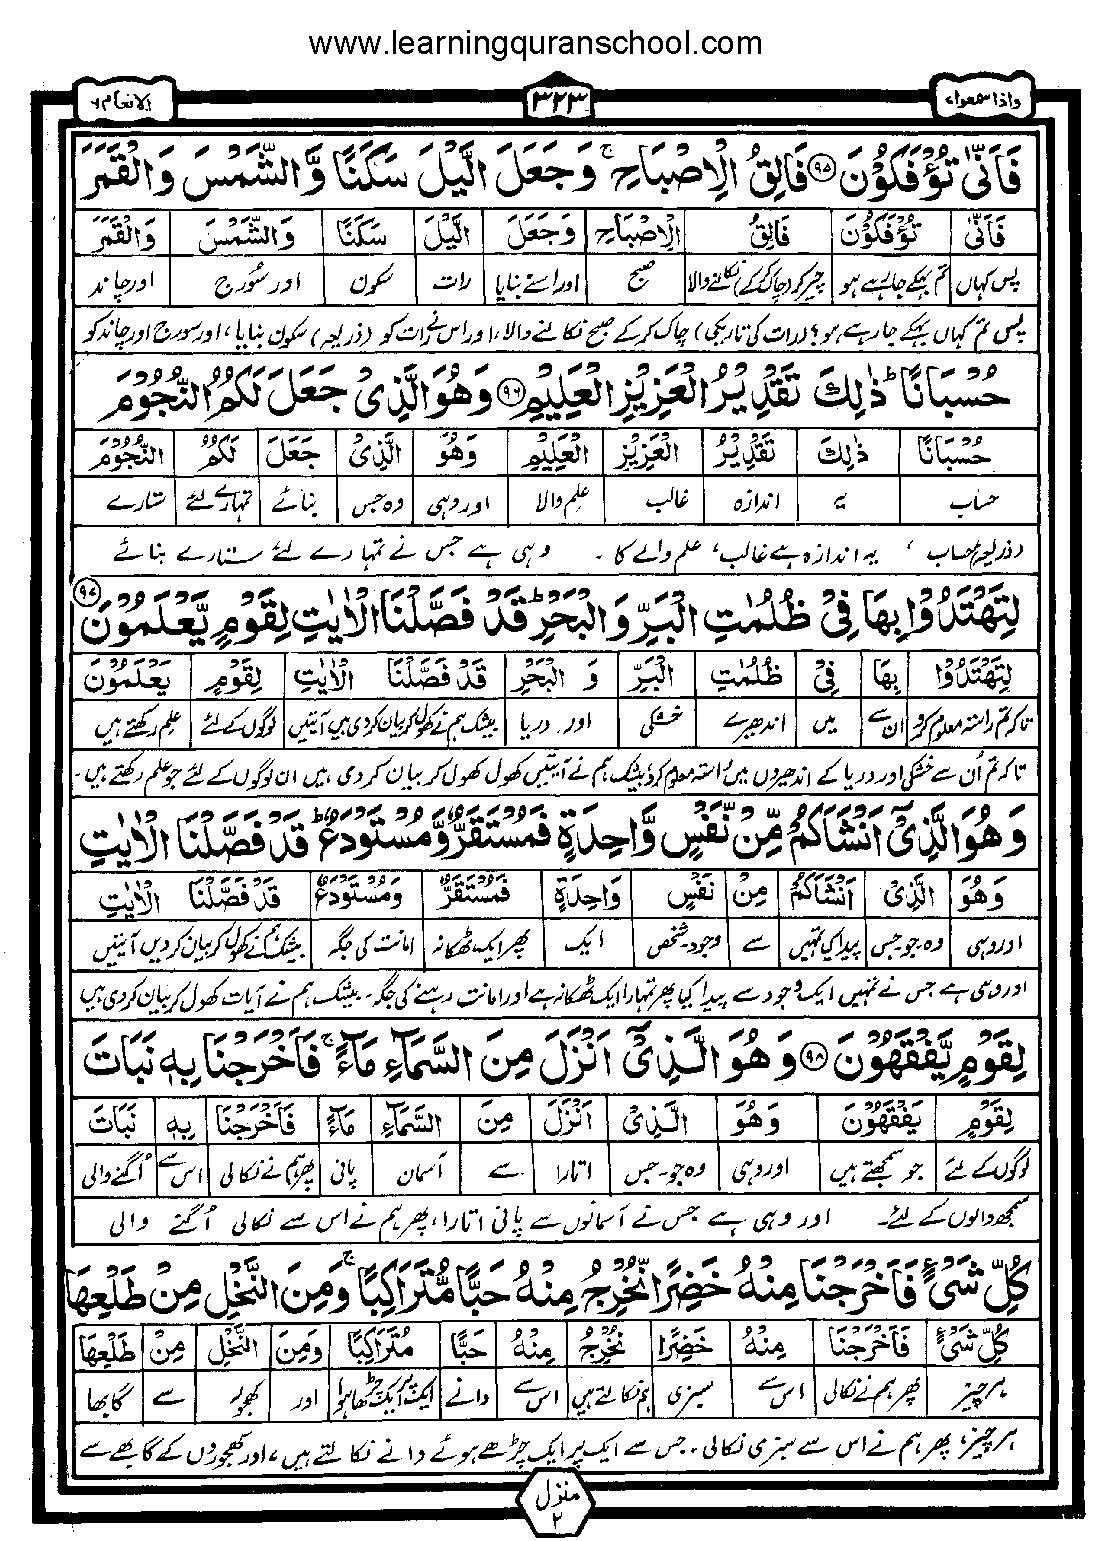 www.learningquranschool.com
واذاسمعوا۷ ۳۲۳ الانعام ۶
فَاَنّٰى تُؤْفَكُوْنَ ﴿۹۵﴾ فَالِقُ الْاِصْبَاحِ ۚ وَجَعَلَ الَّيْلَ سَكَنًا وَّالشَّمْسَ وَالْقَمَرَ
فَاَنّٰى تُؤْفَكُوْنَ فَالِقُ الْاِصْبَاحِ وَجَعَلَ الَّيْلَ سَكَنًا وَالشَّمْسَ وَالْقَمَرَ
پس کہاں تم بہکے جارہے ہو چیر کر (چاک کرکے) نکالنے والا صبح اور اسنے بنایا رات سکون اور سورج اور چاند
پس تم کہاں بہکے جارہے ہو؟ (رات کی تاریکی) چاک کرکے صبح نکالنے والا، اور اس نے رات کو (ذریعہ) سکون بنایا، اور سورج اور چاند کو
حُسْبَانًا ؕ ذٰلِكَ تَقْدِيْرُ الْعَزِيْزِ الْعَلِيْمِ ﴿۹۶﴾ وَهُوَ الَّذِىْ جَعَلَ لَكُمُ النُّجُوْمَ
حُسْبَانًا ذٰلِكَ تَقْدِيْرُ الْعَزِيْزِ الْعَلِيْمِ وَهُوَ الَّذِىْ جَعَلَ لَكُمُ النُّجُوْمَ
حساب یہ اندازہ غالب علم والا اور وہی وہ جس بنائے تمہارے لئے ستارے
(ذریعہ) حساب، یہ اندازہ ہے غالب، علم والے کا۔ وہی ہے جس نے تمہارے لئے ستارے بنائے
لِتَهْتَدُوْا بِهَا فِىْ ظُلُمٰتِ الْبَرِّ وَالْبَحْرِ ؕ قَدْ فَصَّلْنَا الْاٰيٰتِ لِقَوْمٍ يَّعْلَمُوْنَ ﴿۹۷﴾
لِتَهْتَدُوْا بِهَا فِىْ ظُلُمٰتِ الْبَرِّ وَ الْبَحْرِ قَدْ فَصَّلْنَا الْاٰيٰتِ لِقَوْمٍ يَعْلَمُوْنَ
تاکہ تم راستہ معلوم کرو ان سے میں اندھیرے خشکی اور۔ دریا بیشک ہم نے کھول کر بیان کردی ہیں آیتیں لوگوں کے لئے علم رکھتے ہیں
تاکہ تم اُن سے خشکی اور دریا کے اندھیروں میں راستہ معلوم کرو، بیشک ہم نے آیتیں کھول کھول کر بیان کردی ہیں ان لوگوں کے لئے جو علم رکھتے ہیں۔
وَهُوَ الَّذِىْۤ اَنْشَاَكُمْ مِّنْ نَّفْسٍ وَّاحِدَةٍ فَمُسْتَقَرٌّ وَّمُسْتَوْدَعٌ ؕ قَدْ فَصَّلْنَا الْاٰيٰتِ
وَهُوَ الَّذِىْ اَنْشَاَكُمْ مِنْ نَفْسٍ وَاحِدَةٍ فَمُسْتَقَرٌّ وَمُسْتَوْدَعٌ قَدْ فَصَّلْنَا الْاٰيٰتِ
اور وہی وہ جو۔جس پیدا کیا تمہیں سے وجود۔شخص ایک پھر ایک ٹھکانہ امانت کی جگہ بیشک ہم نے کھول کر بیان کردیں آیتیں
اور وہی ہے جس نے تمہیں ایک وجود سے پیدا کیا پھر تمہارا ایک ٹھکانہ ہے اور امانت رہنے کی جگہ۔ بیشک ہم نے آیات کھول کر بیان کردی ہیں
لِقَوْمٍ يَّفْقَهُوْنَ ﴿۹۸﴾ وَهُوَ الَّذِىْۤ اَنْزَلَ مِنَ السَّمَآءِ مَآءً ۚ فَاَخْرَجْنَا بِهٖ نَبَاتَ
لِقَوْمٍ يَفْقَهُوْنَ وَهُوَ الَّذِىْ اَنْزَلَ مِنَ السَّمَآءِ مَآءً فَاَخْرَجْنَا بِهٖ نَبَاتَ
لوگوں کے لئے جو سمجھتے ہیں اور وہی وہ جو۔جس اتارا سے آسمان پانی پھر ہم نے نکالی اس سے اُگنے والی
سمجھ والوں کے لئے۔ اور وہی ہے جس نے آسمانوں سے پانی اتارا، پھر ہم نے اس سے نکالی اُگنے والی
كُلِّ شَىْءٍ فَاَخْرَجْنَا مِنْهُ خَضِرًا نُّخْرِجُ مِنْهُ حَبًّا مُّتَرَاكِبًا ۚ وَمِنَ النَّخْلِ مِنْ طَلْعِهَا
كُلِّ شَىْءٍ فَاَخْرَجْنَا مِنْهُ خَضِرًا نُخْرِجُ مِنْهُ حَبًّا مُتَرَاكِبًا وَمِنَ النَّخْلِ مِنْ طَلْعِهَا
ہر چیز پھر ہم نے نکالی اس سے سبزی ہم نکالتے ہیں اس سے دانے ایک پر ایک چڑھا ہوا اور کھجور سے گابھا
ہر چیز، پھر ہم نے اس سے سبزی نکالی۔ جس سے ایک پر ایک چڑھے ہوئے دانے نکالتے ہیں، اور کھجوروں کے گابھے سے
منزل ۲